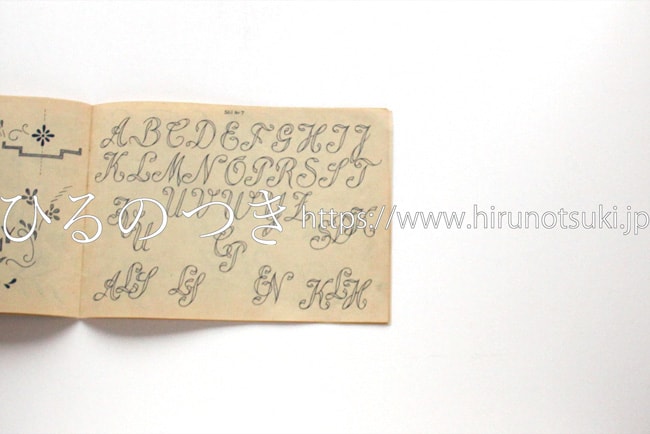 A B C D E F G H I J
K L M N O P R S S T
U V W
ひるのつき https://www.hirunotsuki.jp
ALS LS EN KLH